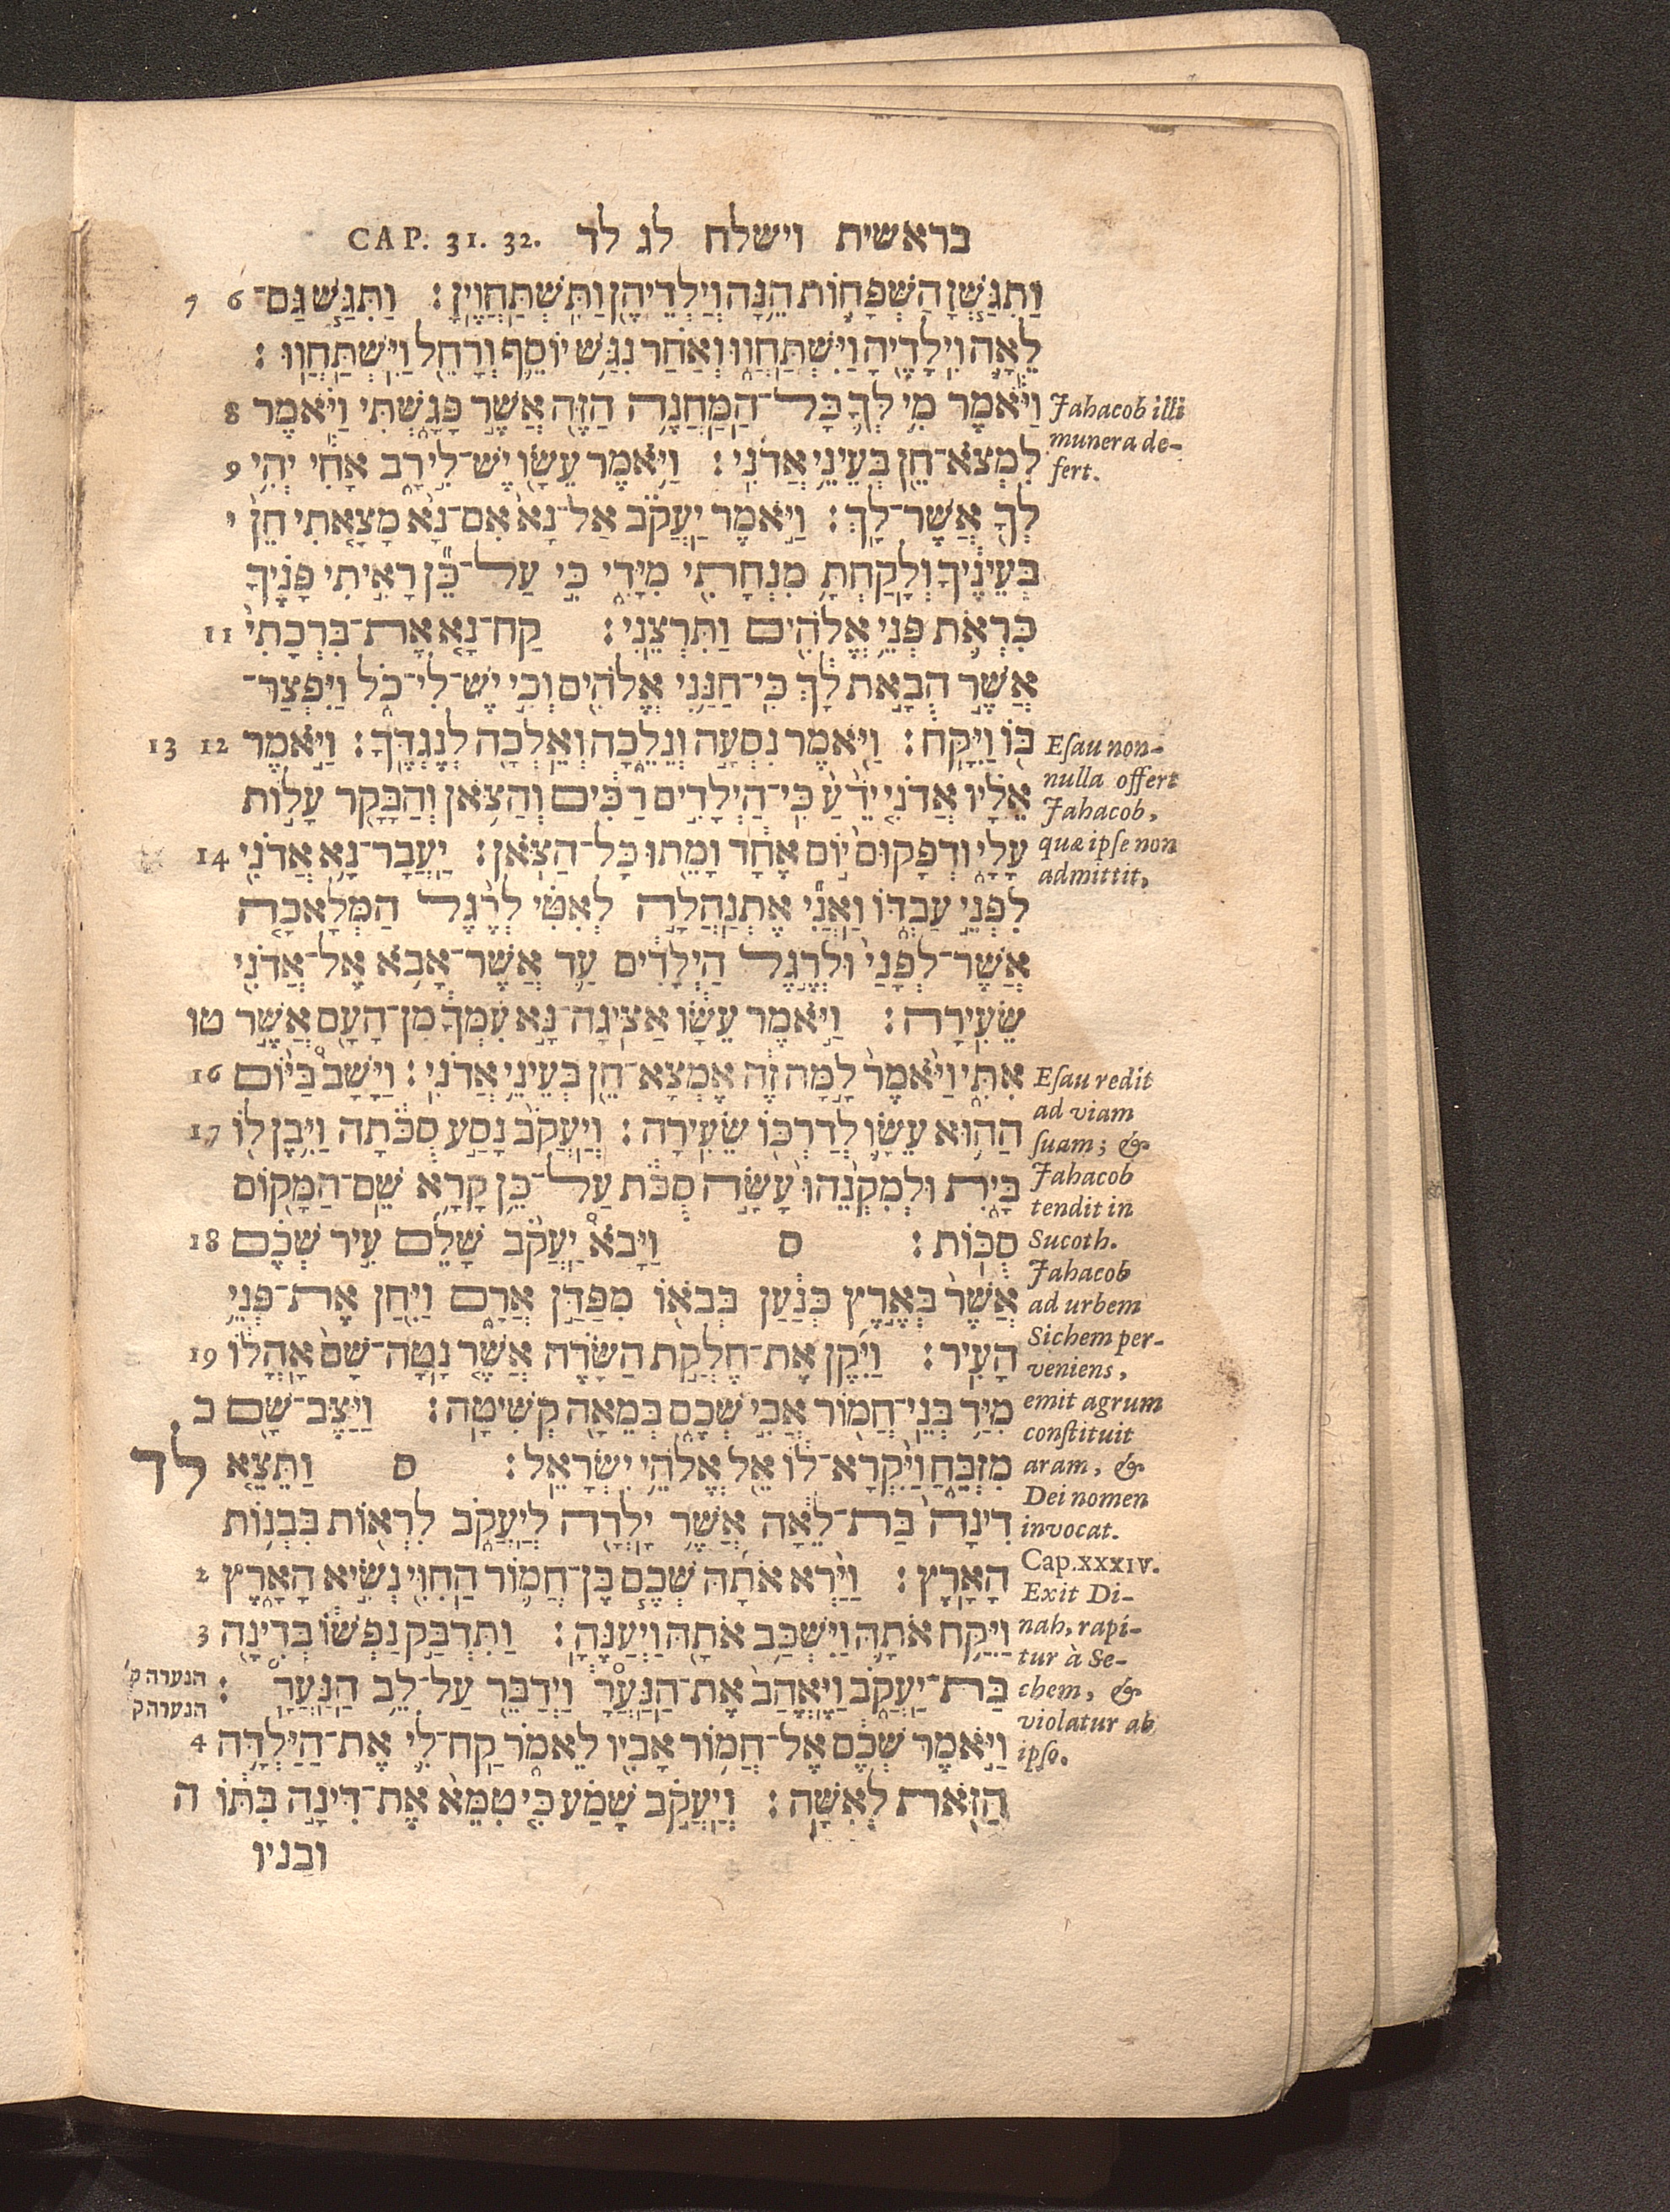 בראשית וישלח לג לד CAP. 31. 32.
וַתִּגַּ֧שְׁןָ הַשְּׁפָח֛וֹת הֵ֥נָּה וְיַלְדֵיהֶ֖ן וַתִּֽשְׁתַּחֲוֶֽיןָ׃ וַתִּגַּ֧שׁ גַּם־ 6 7
לֵאָ֛ה וִֽילָדֶ֖יהָ וַיִּֽשְׁתַּחֲו֑וּ וְאַחַ֗ר נִגַּ֥שׁ יוֹסֵ֛ף וְרָחֵ֖ל וַיִּֽשְׁתַּחֲוֽוּ׃
וַיֹּ֕אמֶר מִ֥י לְךָ֛ כָּל־הַמַּחֲנֶ֥ה הַזֶּ֖ה אֲשֶׁ֣ר פָּגָ֑שְׁתִּי וַיֹּ֕אמֶר 8
לִמְצֹא־חֵ֖ן בְּעֵינֵ֥י אֲדֹנִֽי׃ וַיֹּ֥אמֶר עֵשָׂ֖ו יֶשׁ־לִ֣י רָ֑ב אָחִ֕י יְהִ֥י 9
לְךָ֖ אֲשֶׁר־לָֽךְ׃ וַיֹּ֣אמֶר יַעֲקֹ֗ב אַל־נָא֙ אִם־נָ֨א מָצָ֤אתִי חֵן֙ י
בְּעֵינֶ֔יךָ וְלָקַחְתָּ֥ מִנְחָתִ֖י מִיָּדִ֑י כִּ֣י עַל־כֵּ֞ן רָאִ֣יתִי פָנֶ֗יךָ
כִּרְאֹ֛ת פְּנֵ֥י אֱלֹהִ֖ים וַתִּרְצֵֽנִי׃ קַח־נָ֤א אֶת־בִּרְכָתִי֙ 11
אֲשֶׁ֣ר הֻבָ֣את לָ֔ךְ כִּֽי־חַנַּ֥נִי אֱלֹהִ֖ים וְכִ֣י יֶשׁ־לִי־כֹ֑ל וַיִּפְצַר־
בּ֖וֹ וַיִּקָּֽח׃ וַיֹּ֖אמֶר נִסְעָ֣ה וְנֵלֵ֑כָה וְאֵלְכָ֖ה לְנֶגְדֶּֽךָ׃ וַיֹּ֣אמֶר 12 13
אֵלָ֗יו אֲדֹנִ֤י יֹדֵ֙עַ֙ כִּֽי־הַיְלָדִ֣ים רַכִּ֔ים וְהַצֹּ֥אן וְהַבָּקָ֖ר עָל֣וֹת
עָלָ֑י וּדְפָקוּם֙ י֣וֹם אֶחָ֔ד וָמֵ֖תוּ כָּל־הַצֹּֽאן׃ יַעֲבָר־נָ֥א אֲדֹנִ֖י 14
לִפְנֵ֣י עַבְדּ֑וֹ וַאֲנִ֞י אֶתְנָהֲלָ֣ה לְאִטִּ֗י לְרֶ֨גֶל הַמְּלָאכָ֤ה
אֲשֶׁר־לְפָנַי֙ וּלְרֶ֣גֶל הַיְלָדִ֔ים עַ֛ד אֲשֶׁר־אָבֹ֥א אֶל־אֲדֹנִ֖י
שֵׂעִֽירָה׃ וַיֹּ֣אמֶר עֵשָׂ֔ו אַצִּֽיגָה־נָּ֣א עִמְּךָ֔ מִן־הָעָ֖ם אֲשֶׁ֣ר טו
אִתִּ֑י וַיֹּ֙אמֶר֙ לָ֣מָּה זֶּ֔ה אֶמְצָא־חֵ֖ן בְּעֵינֵ֥י אֲדֹנִֽי׃ וַיָּשָׁב֩ בַּיּ֨וֹם 16
הַה֥וּא עֵשָׂ֛ו לְדַרְכּ֖וֹ שֵׂעִֽירָה׃ וְיַעֲקֹב֙ נָסַ֣ע סֻכֹּ֔תָה וַיִּ֥בֶן ל֖וֹ 17
בָּ֑יִת וּלְמִקְנֵ֙הוּ֙ עָשָׂ֣ה סֻכֹּ֔ת עַל־כֵּ֛ן קָרָ֥א שֵׁם־הַמָּק֖וֹם
סֻכּֽוֹת׃ ס וַיָּבֹא֩ יַעֲקֹ֨ב שָׁלֵ֜ם עִ֣יר שְׁכֶ֗ם 18
אֲשֶׁר֙ בְּאֶ֣רֶץ כְּנַ֔עַן בְּבֹא֖וֹ מִפַּדַּ֣ן אֲרָ֑ם וַיִּ֖חַן אֶת־פְּנֵ֥י
הָעִֽיר׃ וַיִּ֜קֶן אֶת־חֶלְקַ֣ת הַשָּׂדֶ֗ה אֲשֶׁ֤ר נָֽטָה־שָׁם֙ אָהֳל֔וֹ 19
מִיַּ֥ד בְּנֵֽי־חֲמ֖וֹר אֲבִ֣י שְׁכֶ֑ם בְּמֵאָ֖ה קְשִׂיטָֽה׃ וַיַּצֶּב־שָׁ֖ם כ
מִזְבֵּ֑חַ וַיִּ֨קְרָא־ל֔וֹ אֵ֖ל אֱלֹהֵ֥י יִשְׂרָאֵֽל׃ ס וַתֵּצֵ֤א לד
דִינָה֙ בַּת־לֵאָ֔ה אֲשֶׁ֥ר יָלְדָ֖ה לְיַעֲקֹ֑ב לִרְא֖וֹת בִּבְנ֥וֹת
הָאָֽרֶץ׃ וַיַּ֨רְא אֹתָ֜הּ שְׁכֶ֧ם בֶּן־חֲמ֛וֹר הַֽחִוִּ֖י נְשִׂ֣יא הָאָ֑רֶץ 2
וַיִּקַּ֥ח אֹתָ֛הּ וַיִּשְׁכַּ֥ב אֹתָ֖הּ וַיְעַנֶּֽהָ׃ וַתִּדְבַּ֣ק נַפְשׁ֔וֹ בְּדִינָ֖ה 3
בַּת־יַעֲקֹ֑ב וַיֶּֽאֱהַב֙ אֶת־הַֽנַּעֲרָ֔ וַיְדַבֵּ֖ר עַל־לֵ֥ב הַֽנַּעֲרָֽ׃
וַיֹּ֣אמֶר שְׁכֶ֔ם אֶל־חֲמ֥וֹר אָבִ֖יו לֵאמֹ֑ר קַֽח־לִ֛י אֶת־הַיַּלְדָּ֥ה 4
הַזֹּ֖את לְאִשָּֽׁה׃ וְיַעֲקֹ֣ב שָׁמַ֗ע כִּ֤י טִמֵּא֙ אֶת־דִּינָ֣ה בִתּ֔וֹ ה
ובניו
הנערה ק׳
הנערה ק
Jahacob illi
munera de-
fert.
Eſau non-
nulla offert
Jahacob,
quæ ipſe non
admittit,
Eſau redit
ad viam
ſuam; &
Jahacob
tendit in
Sucoth.
Jahacob
ad urbem
Sichem per-
veniens,
emit agrum
conſtituit
aram, &
Dei nomen
invocat.
Cap. XXXIV.
Exit Di-
nah, rapi-
tur à Se-
chem, &
violatur ab
ipſo.